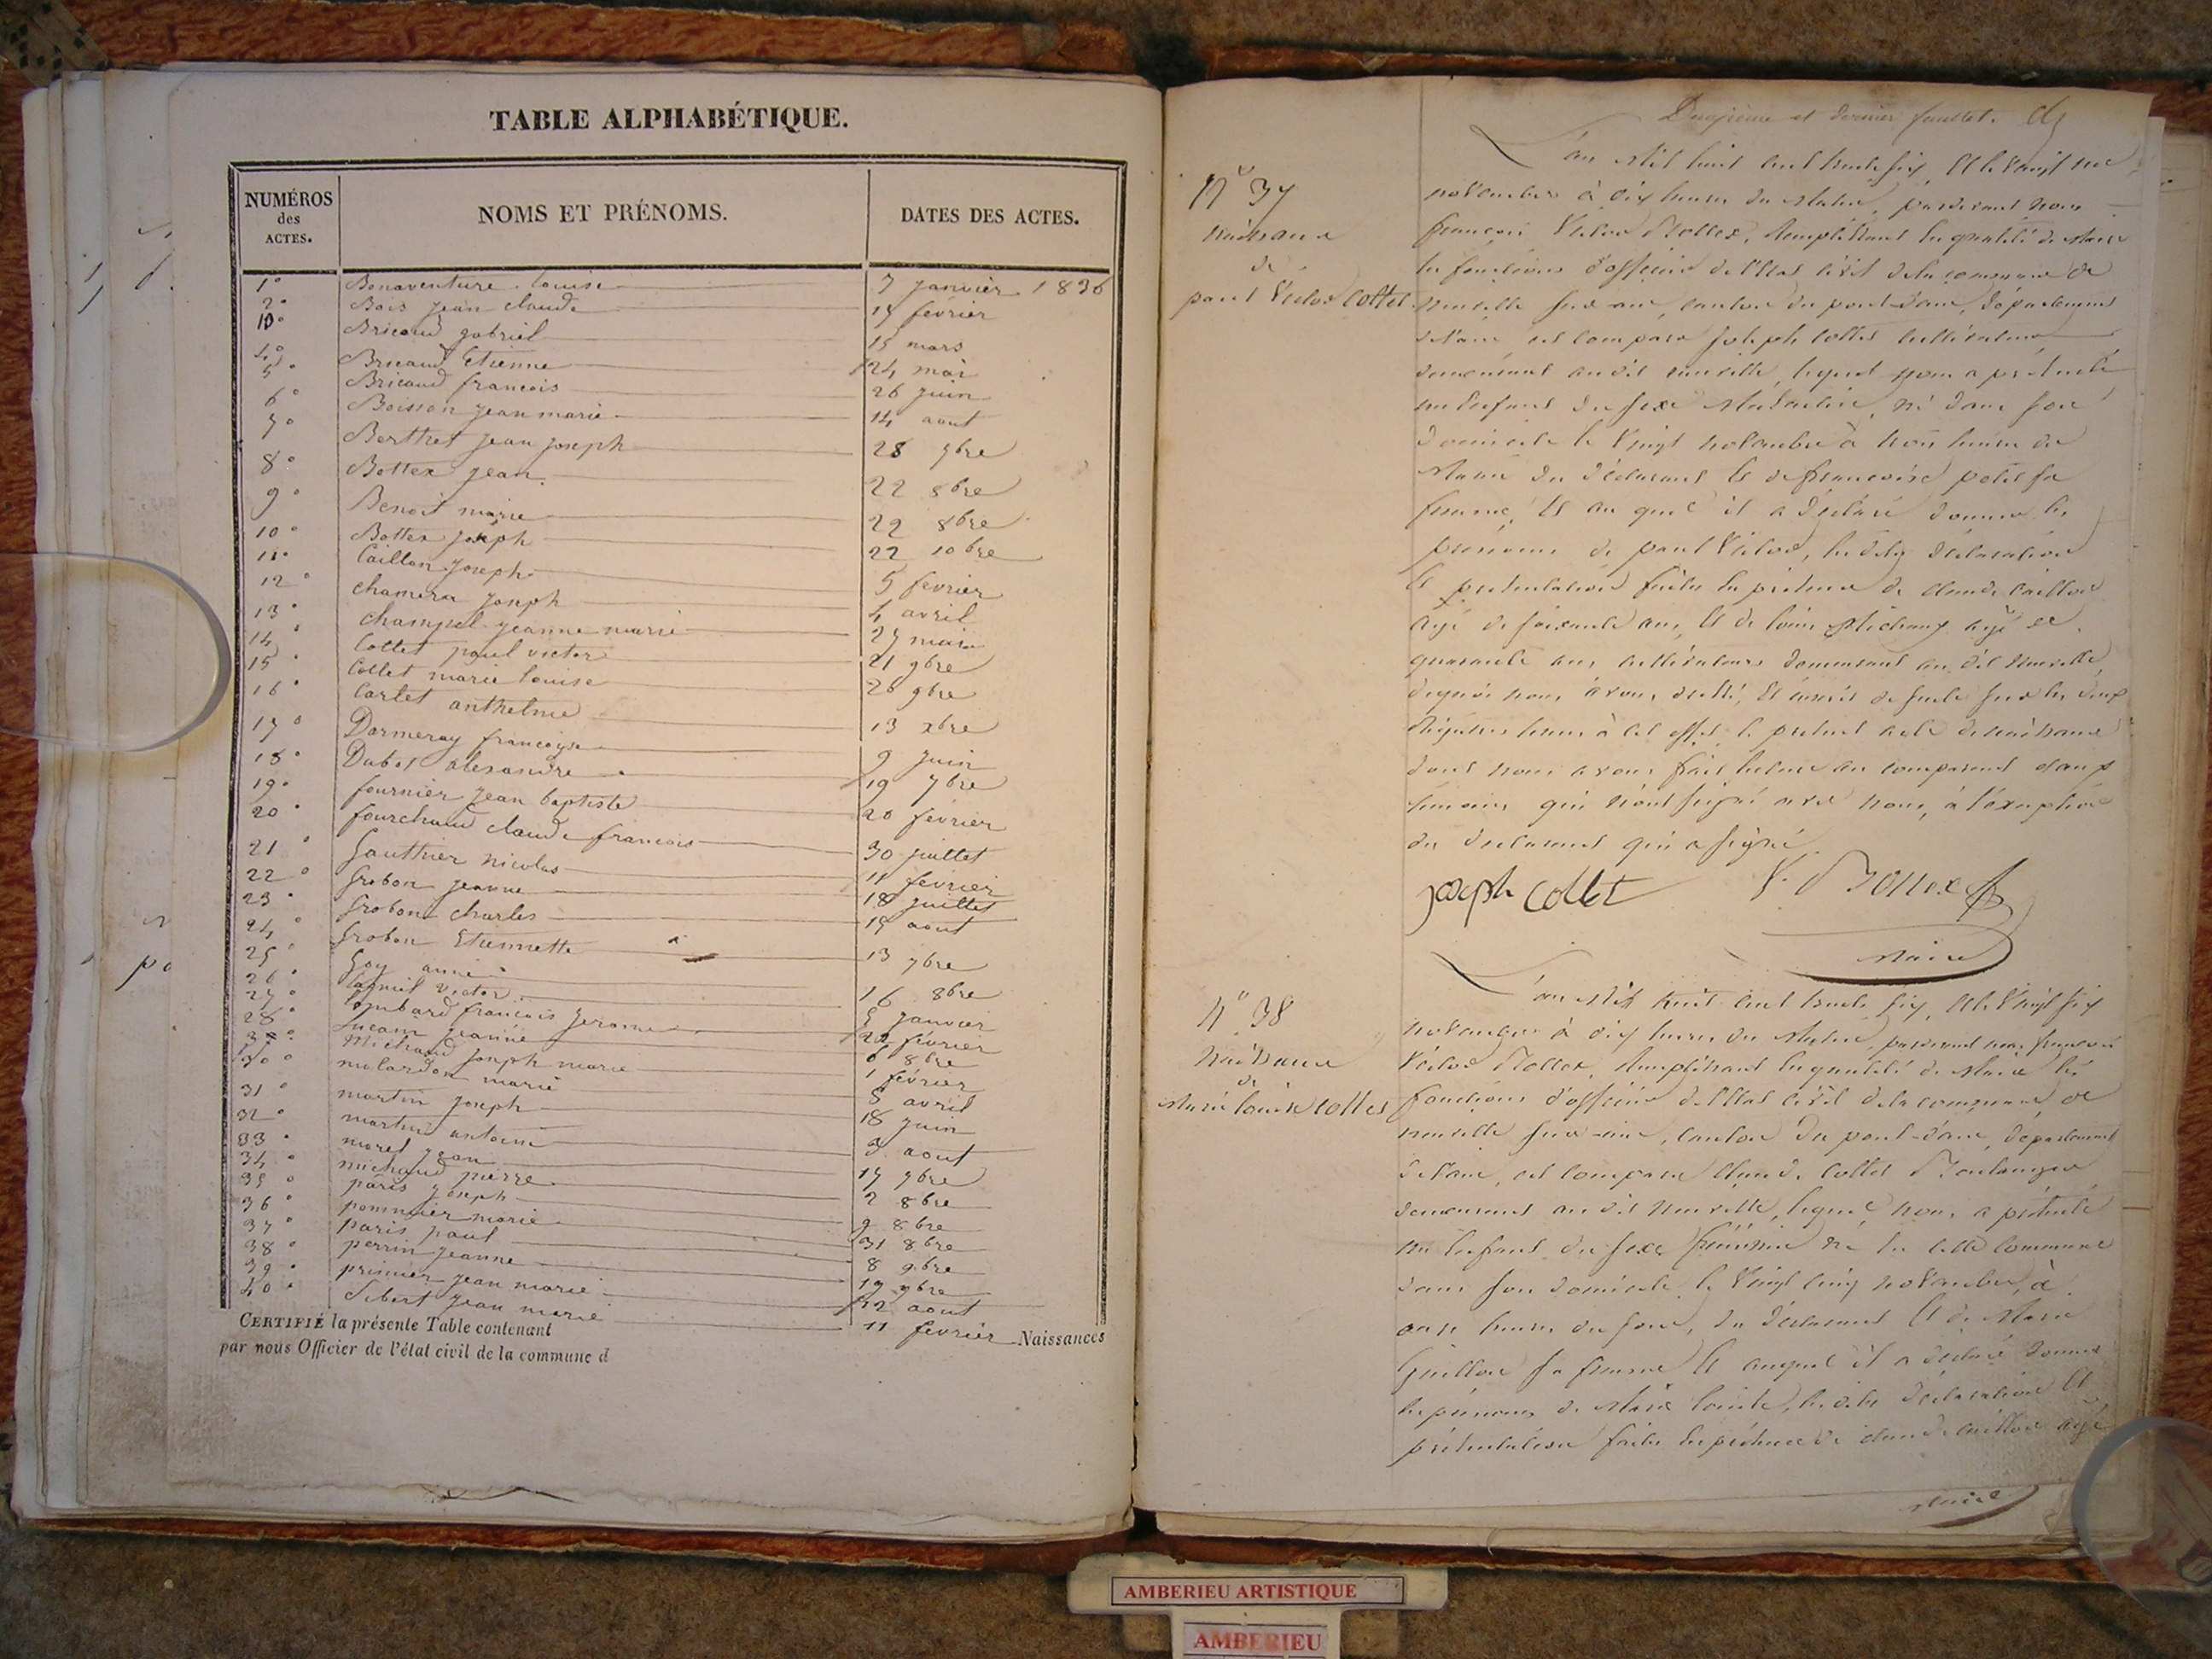 TABLE ALPHABÉTIQUE.
NUMÉROS des ACTES.
NOMS ET PRÉNOMS.
DATES DES ACTES.
1° Bonaventure Louise 7 janvier 1836
2° Bois jean claude 14 février
Bricaud gabriel 15 mars
4° Bricaud Etienne 24 mai
5° Bricaud francois 26 juin
6° Boisson jean marie 14 aout
7° Berthet jean joseph 28 7bre
8° Bottex jean 22 8bre
9° Benoit marie 22 8bre
10° Bottex joseph 22 10bre
11° Caillon joseph 5 fevrier
12° chamera joseph 4 avril
13° champel jeanne marie 27 mai
14° Collet paul victor 21 9bre
15° Collet marie louise 26 9bre
16° Carlet anthelme 13 xbre
17° Dormeray françoise 9 juin
18° Dubos alexandre 19 7bre
19° fournier jean baptiste 20 février
20° fourchaud claude francois 30 juillet
21° Gauthier nicolas 11 février
22° Grobon jeanne 18 juillet
23° Grobon charles 15 aout
24° Grobon Etiennette 13 7bre
25° Goy annie 16 8bre
26° victor 5 janvier
27° Lombard francois jerome 22 février
28° jeanne 6 8bre
Michaud joseph marie 1 février
30° molardon marie 5 avril
31° martin joseph 18 juin
32° martin antoine 3 aout
33° morel jean 17 7bre
34° michaud pierre 2 8bre
35° paris joseph 9 8bre
36° pommier marie 31 8bre
37° paris paul 8 9bre
38° perrin jeanne 19 9bre
39° prinier jean marie 22 aout
40° Sibert jean marie 11 fevrier
CERTIFIÉ la présente Table contenant Naissances
par nous Officier de l'état civil de la commune d
Douzième et dernier feuillet.
N° 37
Naissance
de
paul Victor Collet
L'an mil huit cent trente six, et le vingt un
novembre à dix heures du matin, pardevant nous
françois Victor Bottex, remplissant en qualité de Maire
les fonctions d'officier de l'Etat civil de la commune de
neuville sur ain, canton du pont-d'ain, département
de l'ain, est comparu joseph collet cultivateur
demeurant au dit neuville, lequel nous a présenté
un enfant du sexe Masculin, né dans son
domicile le vingt novembre à trois heures du
Matin du déclarant et de françoise petit sa
femme, et au quel il a déclaré donner les
prénoms de paul Victor, les dites déclaration
et présentation faites en présence de claude caillon
âgé de soixante ans, et de louis Michaux âgé de
quarante ans cultivateurs demeurant au dit neuville
dequoi nous avons dressé, et inscrit de suite sur les deux
registres tenus à cet effet, le présent acte de naissance
dont nous avons fait lecture au comparant et aux
témoins qui n'ont signé avec nous, à l'exception
du déclarant qui a signé.
joseph collet V. Bottex
Maire
N° 38
Naissance
de
Marie louise Collet
L'an mil huit cent trente six, et le vingt six
novembre à dix heures du Matin, pardevant nous françois
Victor Bottex, remplissant en qualité de Maire les
fonctions d'officier de l'Etat civil de la commune de
neuville sur-ain, canton du pont-d'ain, département
de l'ain, est comparu claude collet Boulanger
demeurant au dit neuville, lequel nous a présenté
un enfant du sexe féminin né en cette commune
dans son domicile le vingt cinq novembre, à
onze heures du soir, du déclarant et de Marie
Guillon sa femme et auquel il a déclaré donner
les prénoms de Marie louise, les dites déclaration et
présentation faites en présence de claude caillon âgé
Maire
AMBERIEU ARTISTIQUE
AMBERIEU